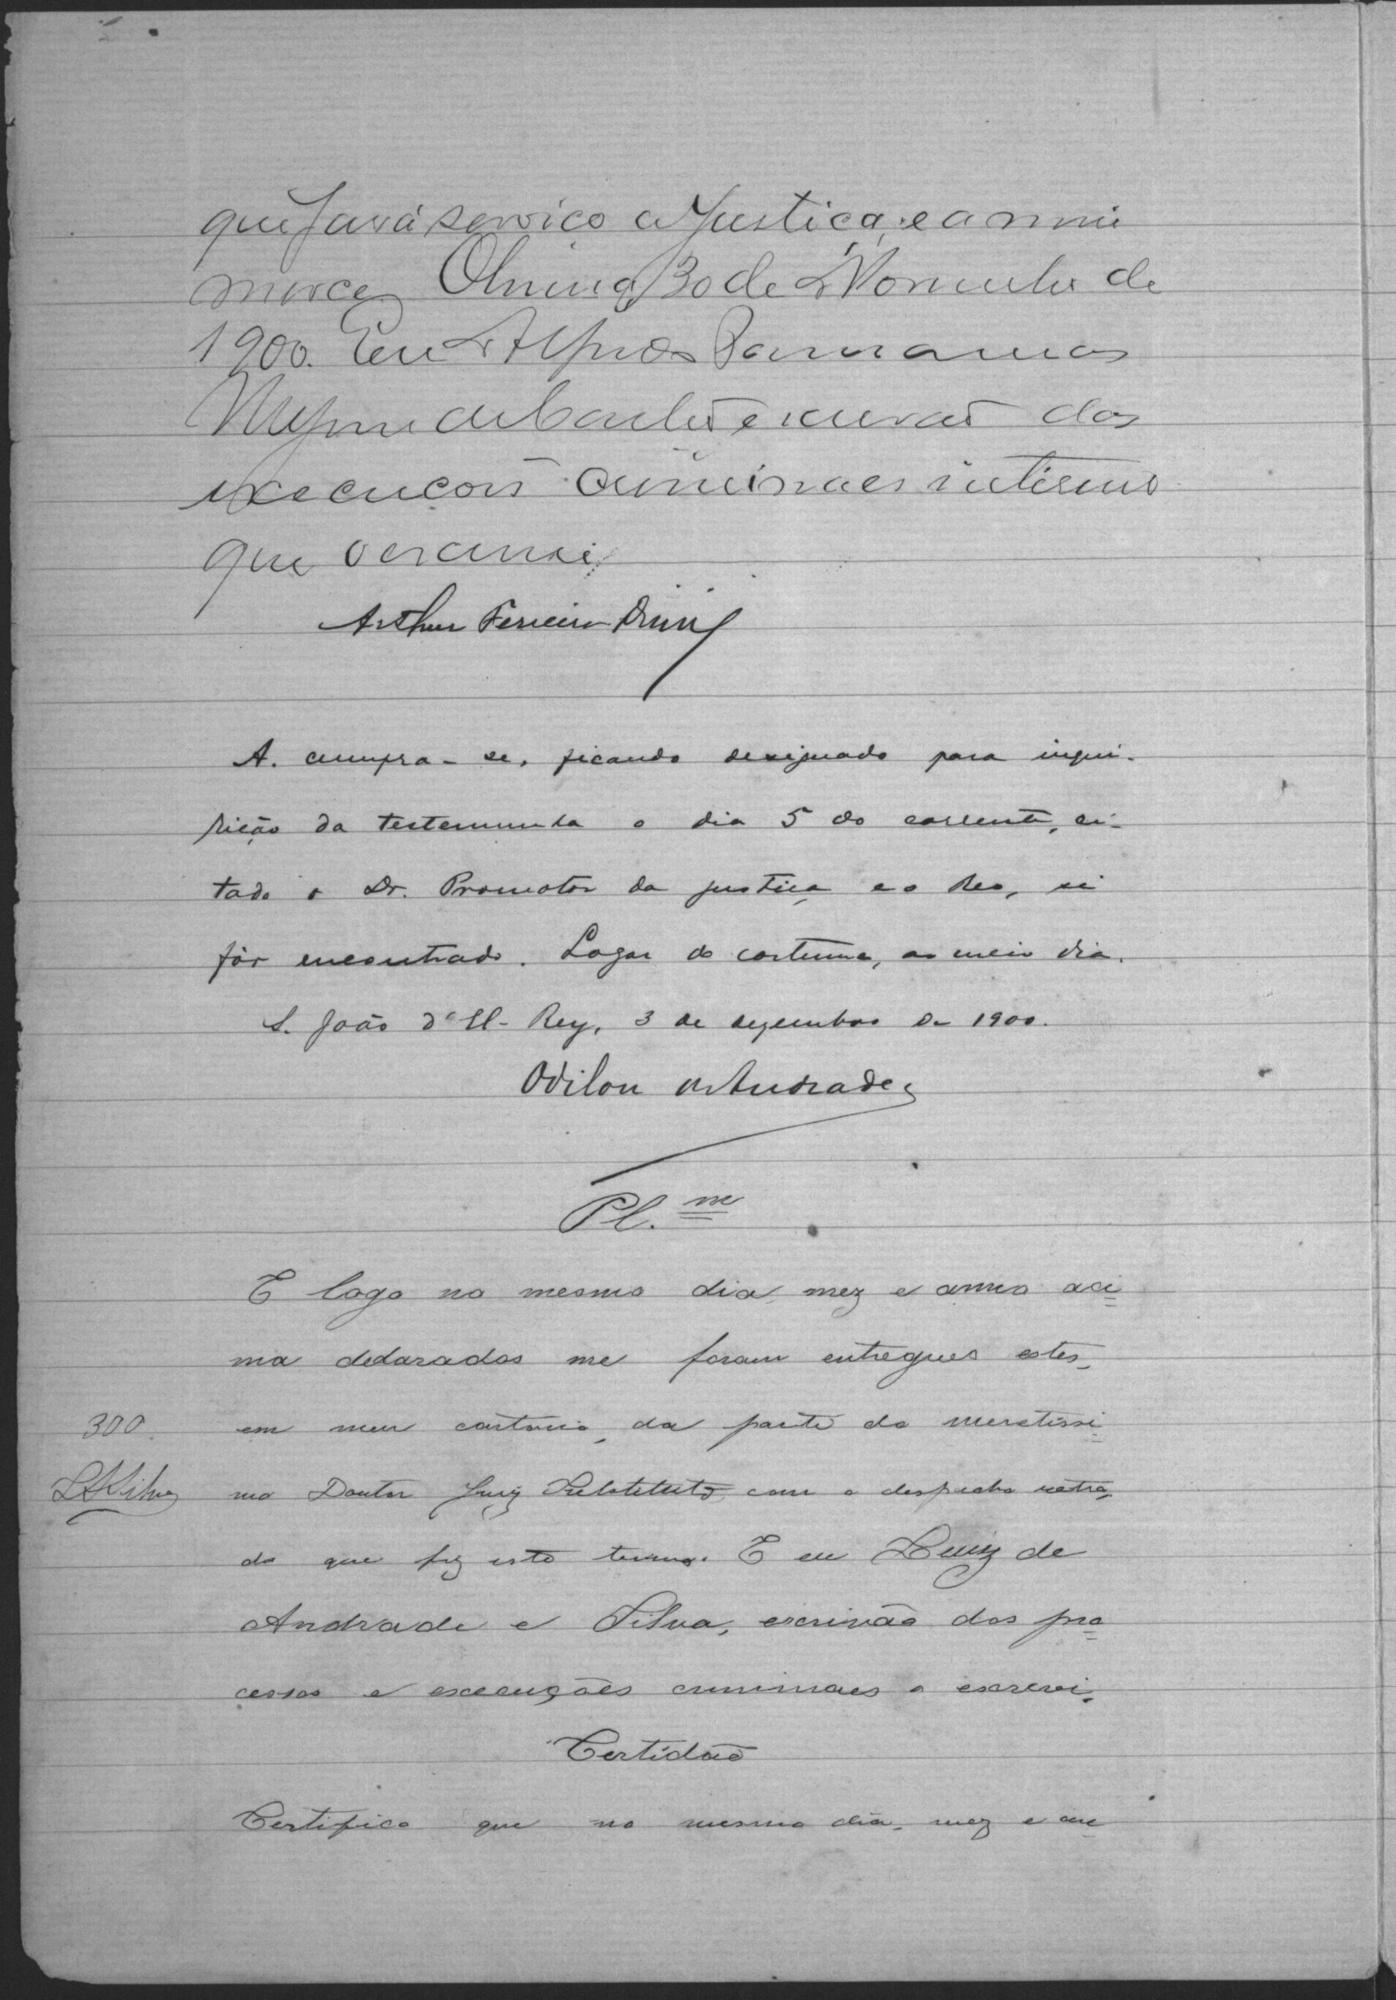 que fará serviço a Justiça, e a mim
merce 30 de Novembro de
1900. Eu
escrivão das
execuções criminaes interino
que o escrevi
Arthur Ferreira Diniz
A. cumpra-se, ficando designado para inqui-
rição da testemunha o dia 5 do corrente, ci-
tado o Dr. Promotor da justiça e o Reo, si
fôr encontrado. Logar do costume, ao meio dia.
S. João d'El-Rey, 3 de dezembro de 1900.
Odilon de Andrade
Pl.me
E logo no mesmo dia, mez e anno aci=
ma declarados me foram entregues estes,
300.
em meu cartorio, da parte do meretissi=
LASilva
mo Doutor Juiz Substituto com o despacho retro,
do que fiz este termo. E eu Luiz de
Andrade e Silva, escrivão dos pro=
cessos e execuções criminaes o escrevi.
Certidão
Certifico que no mesmo dia, mez e an